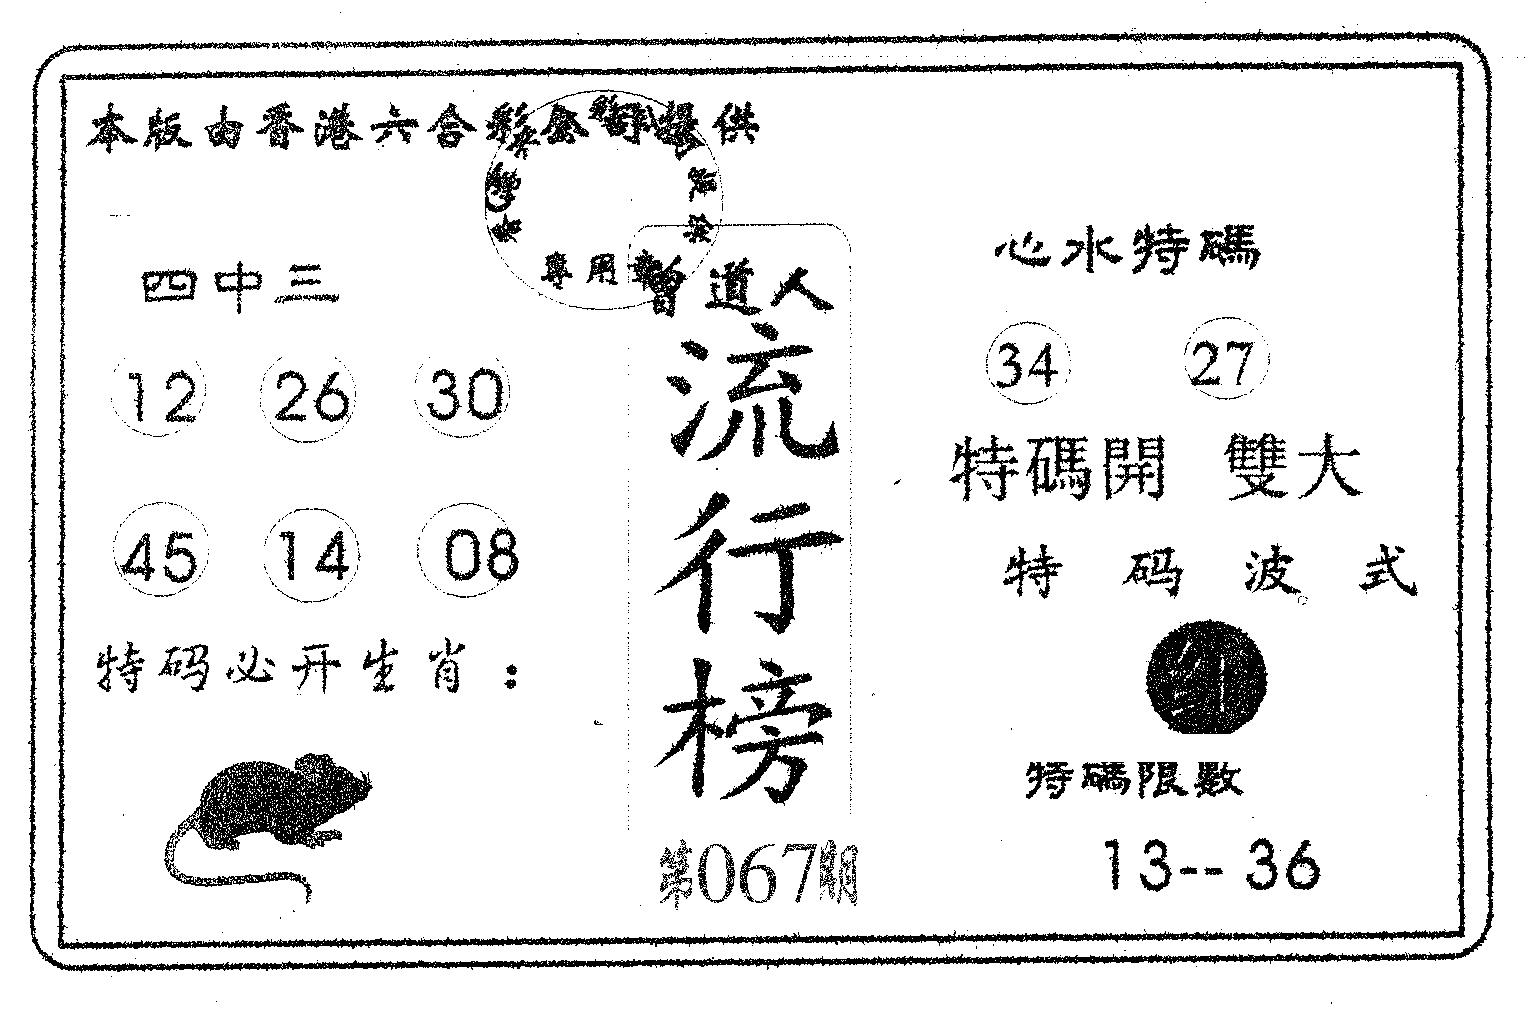 本版由香港六合彩公司提供
專用章
四中三
12 26 30
45 14 08
特码必开生肖：
曾道人
流行榜
第067期
心水特碼
34 27
特碼開 雙大
特码波式
红
特碼限數
13-- 36